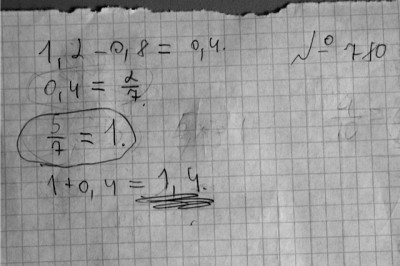 1,2 - 0,8 = 0,4.
№ 780
0,4 = 2/7.
5/7 = 1.
1 + 0,4 = 1,4.